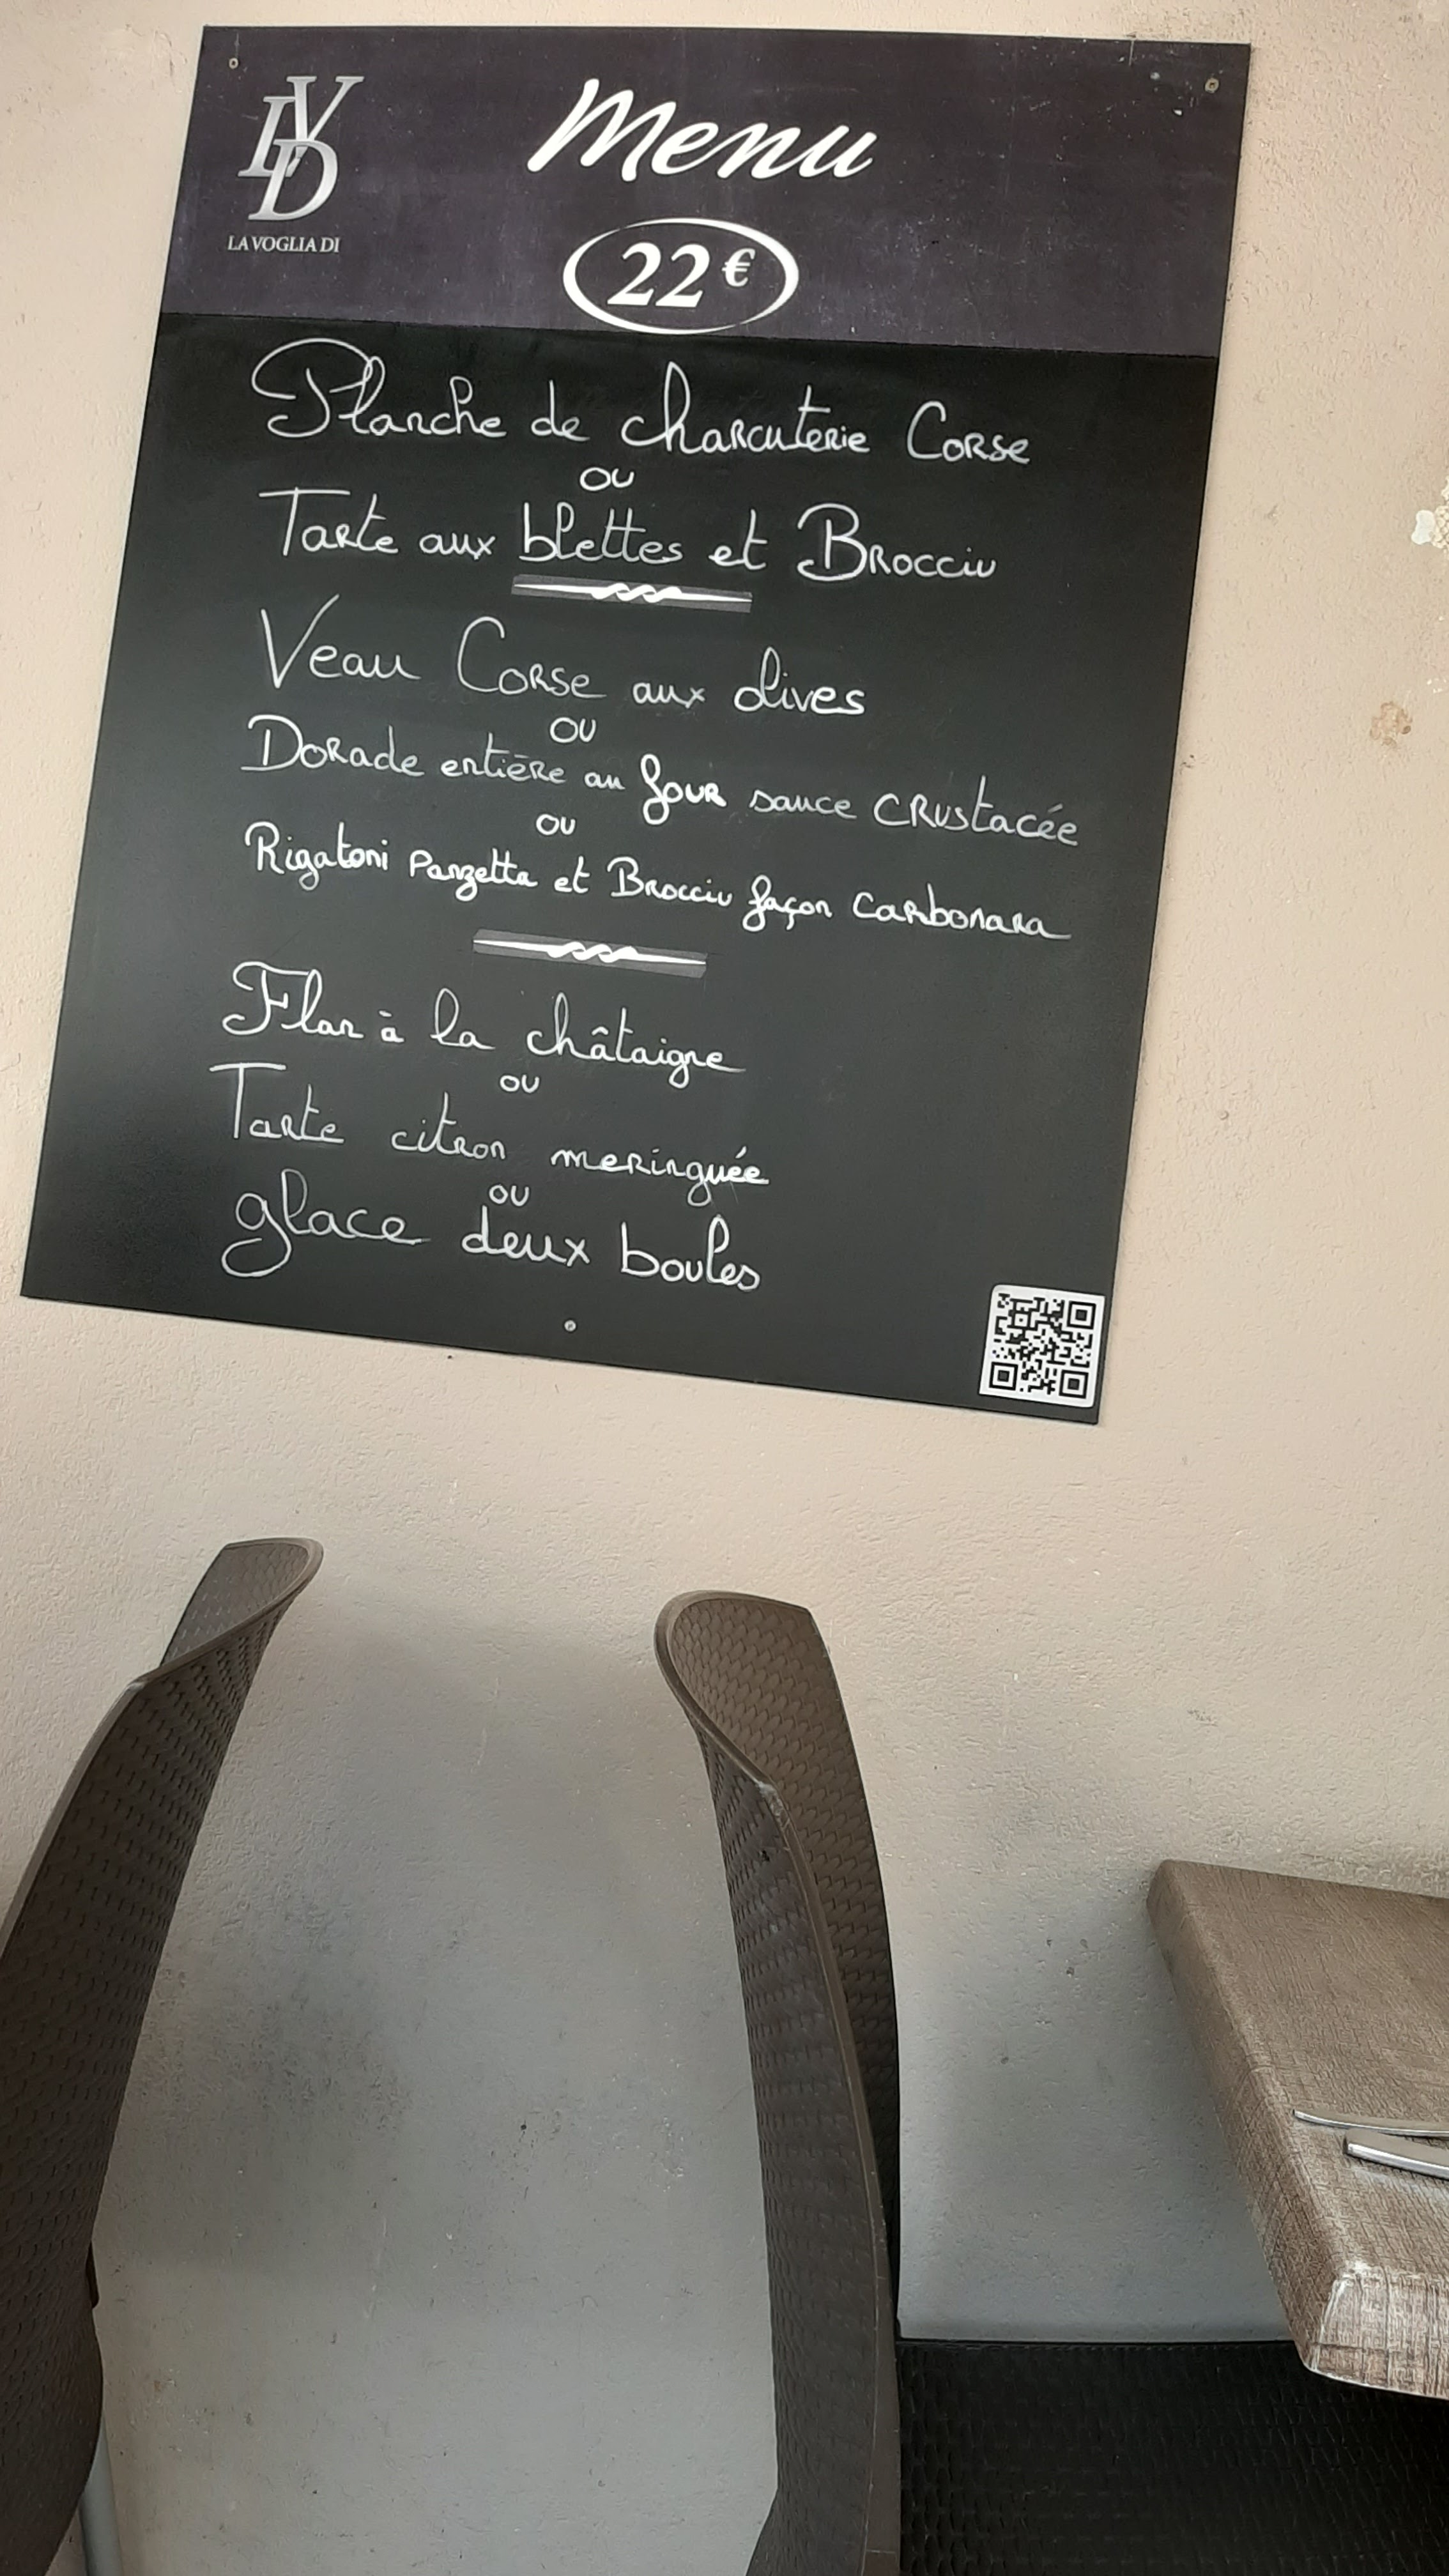 LVD
LA VOGLIA DI
Menu
22€
Planche de charcuterie Corse
ou
Tarte aux blettes et Brocciu
Veau Corse aux olives
ou
Dorade entière au four sauce crustacée
ou
Rigatoni Panzetta et Brocciu façon Carbonara
Flan à la châtaigne
ou
Tarte citron meringuée
ou
glace deux boules